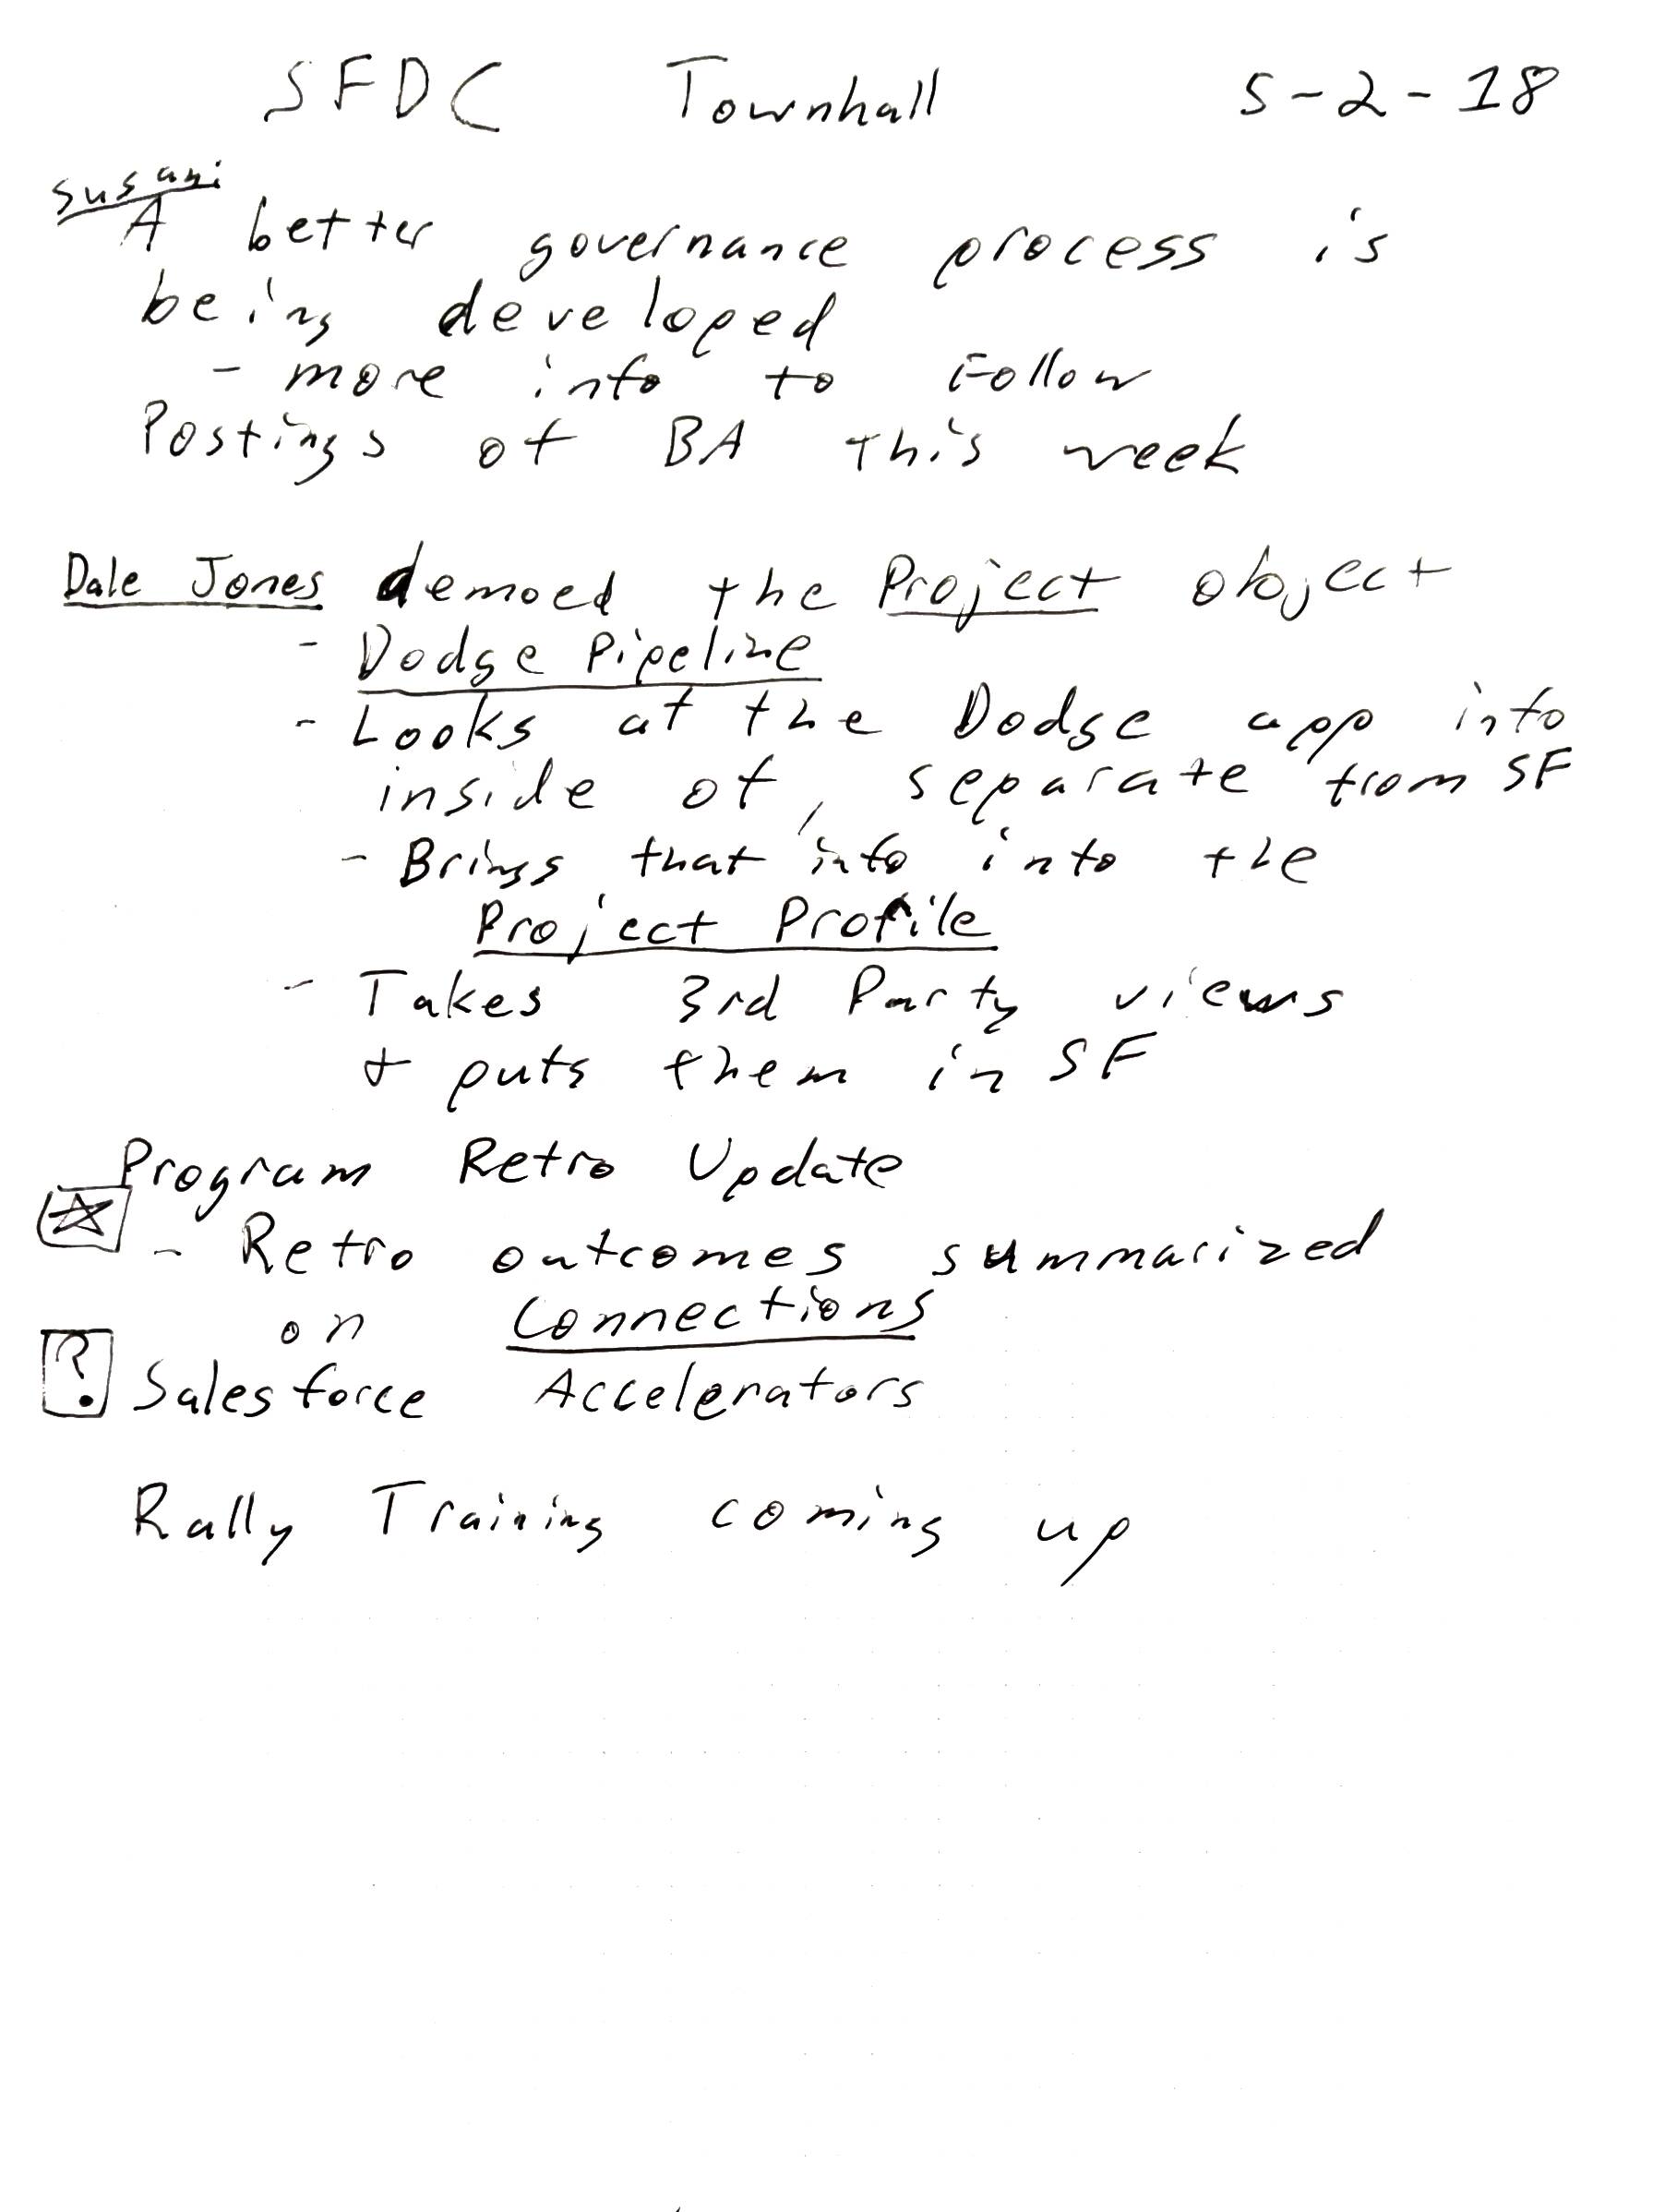 SFDC Townhall 5-2-18
Susan:
A better governance process is
being developed
- more info to Follow
Postings of BA this week
Dale Jones demoed the Project object
- Dodge Pipeline
- Looks at the Dodge app info
inside of, separate from SF
- Brings that info into the
Project Profile
- Takes 3rd Party views
+ puts them in SF
Program Retro Update
- Retro outcomes summarized
on Connections
? Salesforce Accelerators
Rally Training coming up